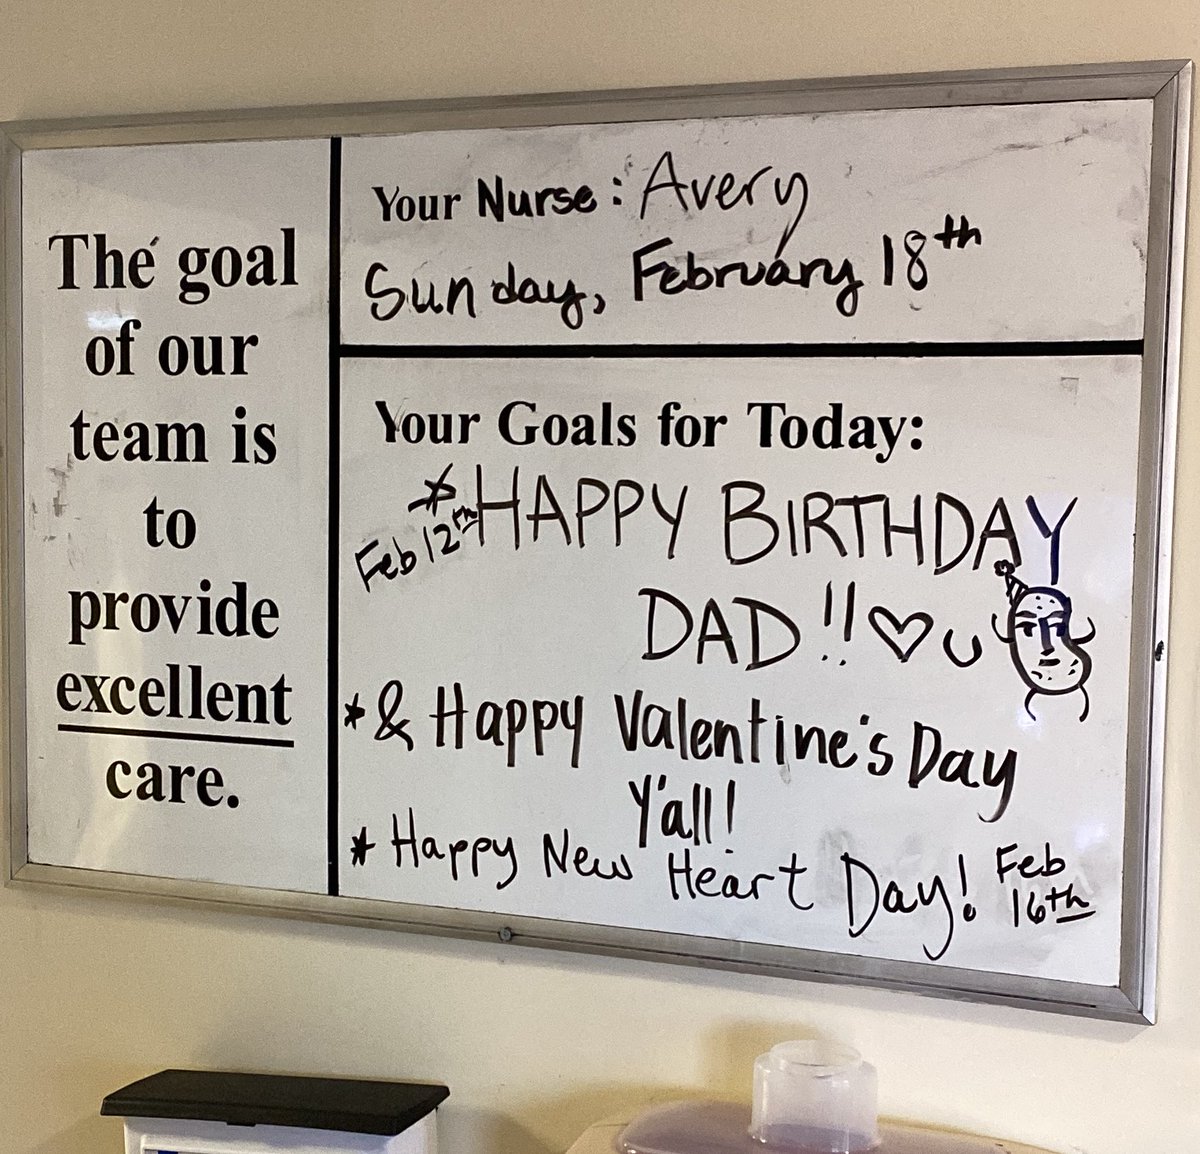 The goal
of our
team is
to
provide
excellent
care.
Your Nurse: Avery
Sunday, February 18th
Your Goals for Today:
*HAPPY BIRTHDAY
Feb 12th
DAD!!♡
*& Happy Valentine's Day
Y'all!
* Happy New Heart Day! Feb
16th